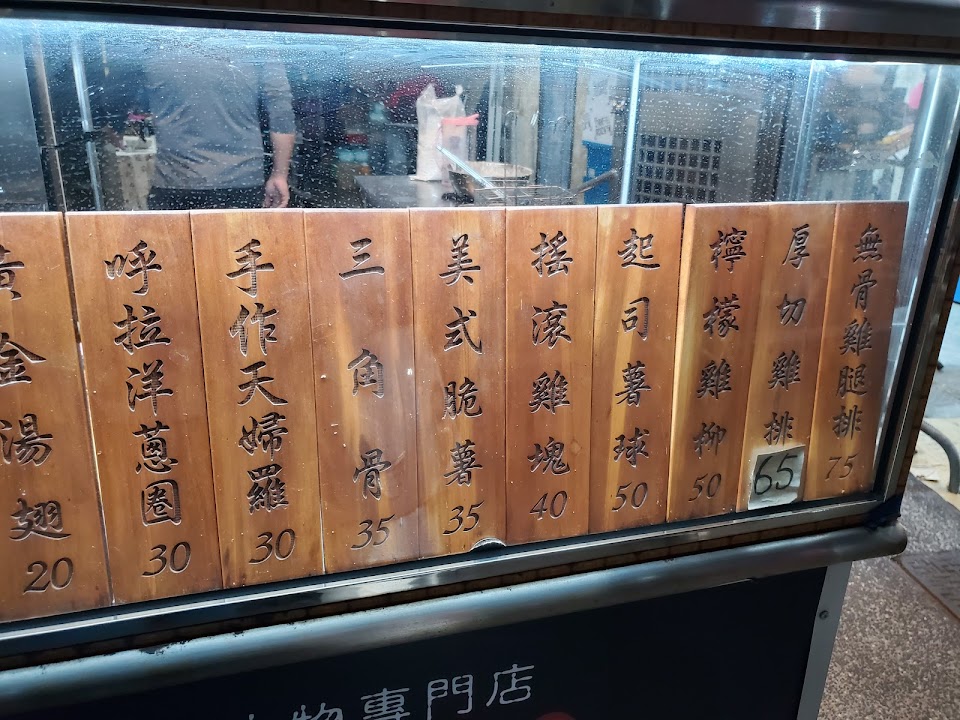 無骨雞腿排 75
厚切雞排 65
檸檬雞柳 50
起司薯球 50
搖滾雞塊 40
美式脆薯 35
三角骨 35
手作天婦羅 30
呼拉洋蔥圈 30
黃金湯翅 20
物專門店